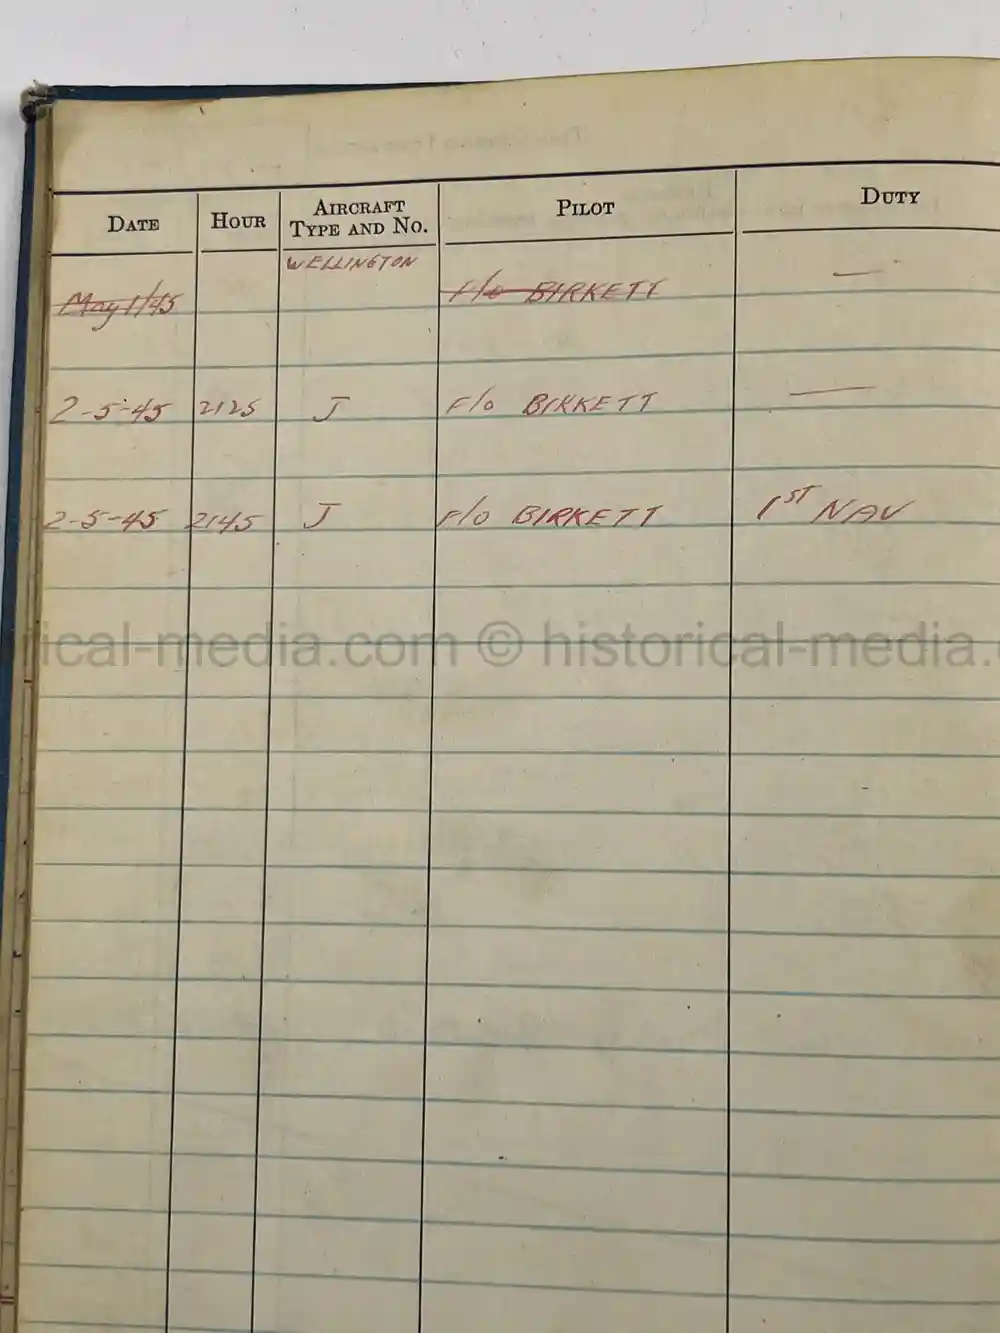 DATE HOUR AIRCRAFT TYPE AND NO. PILOT DUTY
WELLINGTON
May 1/45 F/O BIRKETT —
2-5-45 2125 J F/O BIRKETT —
2-5-45 2145 J F/O BIRKETT 1ST NAV
rical-media.com © historical-media.